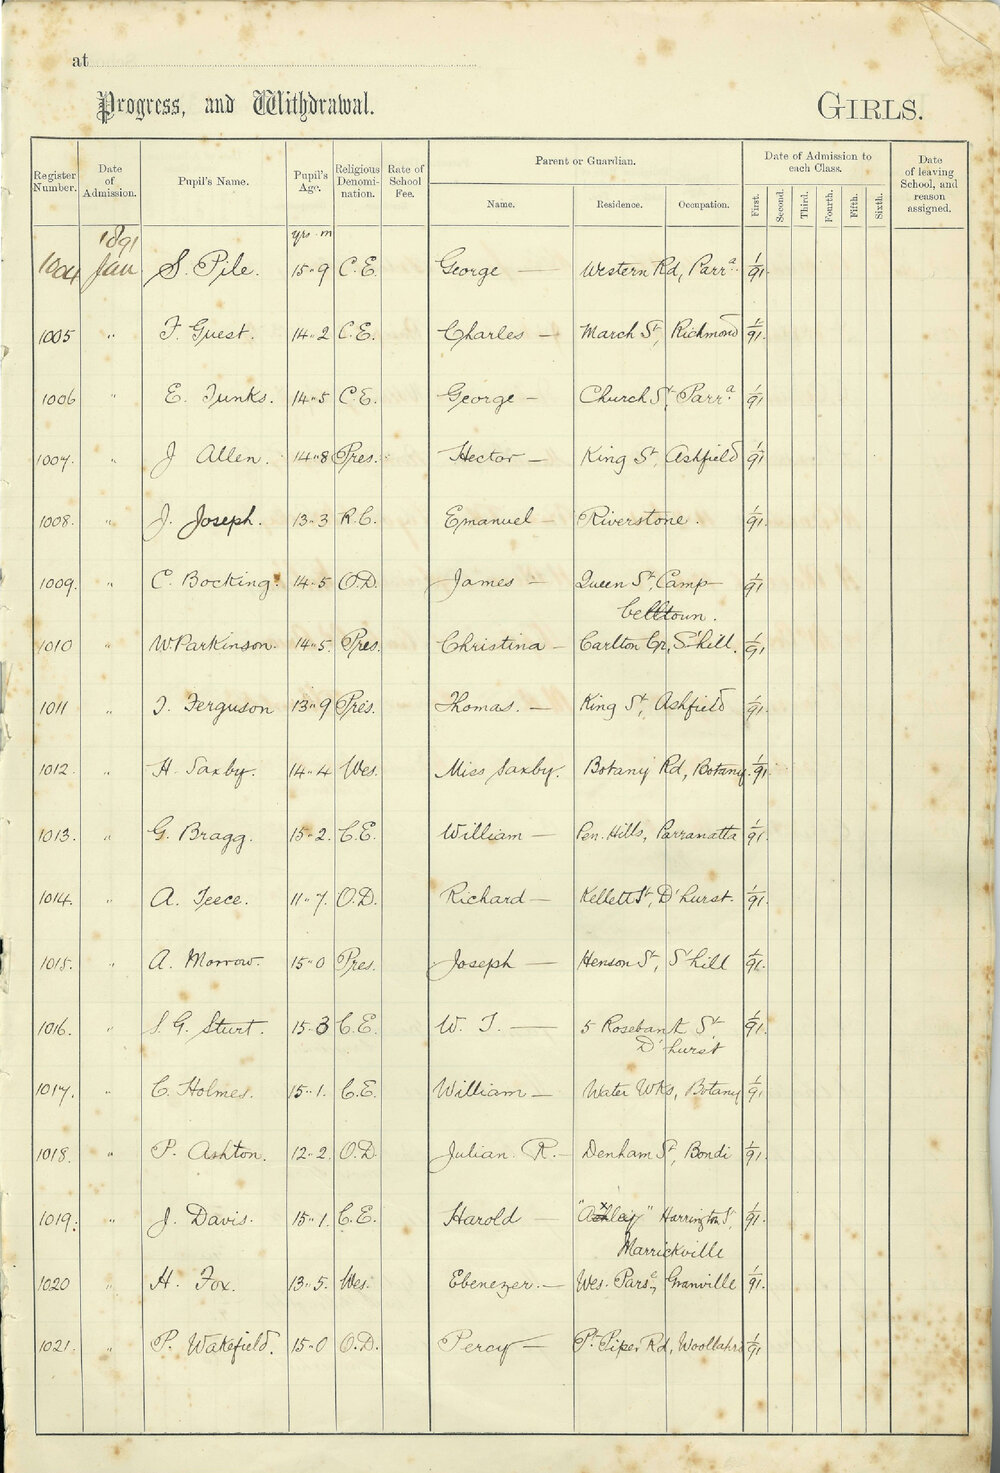 at
Progress, and Withdrawal. GIRLS.
Register Number. Date of Admission. Pupil's Name. Pupil's Age. Religious Denomination. Rate of School Fee. Parent or Guardian. Date of Admission to each Class. Date of leaving School, and reason assigned.
Name. Residence. Occupation. First. Second. Third. Fourth. Fifth. Sixth.
1891 yrs. m
1004 Jan S. Pile. 15"9 C.E. George — Western Rd, Parrᵃ. 1/91
1005 " F. Guest. 14"2 C.E. Charles — March St, Richmond 1/91.
1006 " E. Junks. 14"5 C.E. George — Church St, Parrᵃ. 1/91
1007. " J Allen. 14"8 Pres. Hector — King St, Ashfield 1/91
1008. " J. Joseph. 13"3 R.C. Emanuel — Riverstone. 1/91.
1009. " C. Bocking. 14"5 O.D. James — Queen St, Camp 1/91
belltown.
1010 " W. Parkinson. 14"5. Pres. Christina — Carlton Cr, S'hill. 1/91
1011 " J. Ferguson 13"9 Pres. Thomas. — King St, Ashfield 1/91.
1012. " H. Saxby. 14"4 Wes. Miss Saxby. Botany Rd, Botany. 1/91.
1013. " G. Bragg. 15"2. C.E. William — Pen. Hills, Parramatta 1/91.
1014. " A. Teece. 11"7. O.D. Richard — Kellett St, D'hurst. 1/91.
1015. " A. Morrow. 15"0 Pres. Joseph — Henson St, S'hill 1/91.
1016. " S. G. Sturt. 15"3 C.E. W. J. — 5 Rosebank St 1/91.
D'hurst
1017. " C. Holmes. 15"1. C.E. William — Water Wks, Botany 1/91
1018. " P. Ashton. 12"2. O.D. Julian. R. — Denham St, Bondi 1/91.
1019. " J. Davis. 15"1. C.E. Harold — "Ashley" Harrington St, 1/91.
Marrickville
1020 " H. Fox. 13"5. Wes. Ebenezer. — Wes. Parsᵉ, Granville 1/91.
1021. " P. Wakefield. 15"0 O.D. Percy — Pt. Piper Rd, Woollahra 1/91